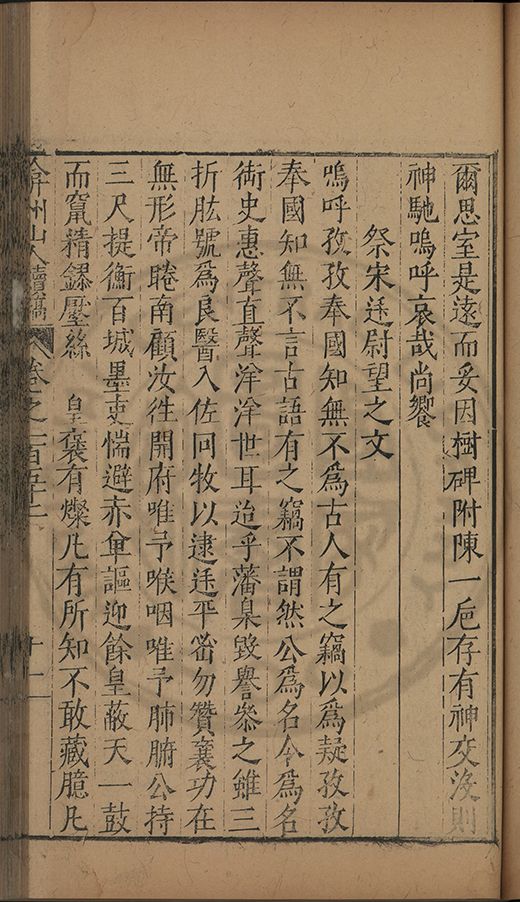 爾思室是遠而妥因樹碑附陳一巵存有神交沒則
神馳嗚呼哀哉尚饗
祭宋廷尉望之文
嗚呼孜孜奉國知無不爲古人有之竊以爲疑孜孜
奉國知無不言古語有之竊不謂然公爲名令爲名
御史惠聲直聲洋洋世耳迨乎藩臬毀譽叅之雖三
折肱號爲良醫入佐冏牧以逮廷平密勿贊襄功在
無形帝睠南顧汝徃開府唯予喉咽唯予肺腑公持
三尺提衡百城墨吏惴避赤甿謳迎餘皇蔽天一鼓
而竄精鏐壓絲 皇襃有燦凡有所知不敢藏臆凡
弇州山人續稿 卷之一百五十二 十二